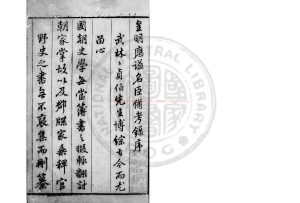 皇明應謚名臣備考錄序
武林貞伯先生博綜古今而尤
留心
國朝文學每當簿書之暇輒翻討
朝家掌故以及鄉牒家乘稗官
野史之書無不裒集而刪纂